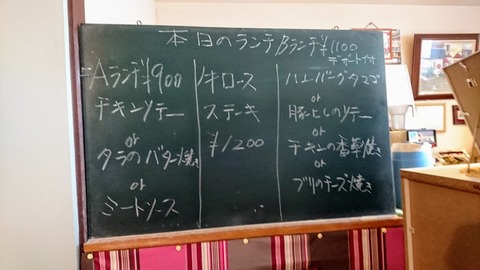 本日のランチ
Aランチ¥900
チキンソテー
or
タラのバター焼き
or
ミートソース
牛ロース
ステーキ
¥1200
Bランチ¥1100
デザート付
ハンバーグタマゴ
or
豚ヒレのソテー
or
チキンの香草焼き
or
ブリのチーズ焼き